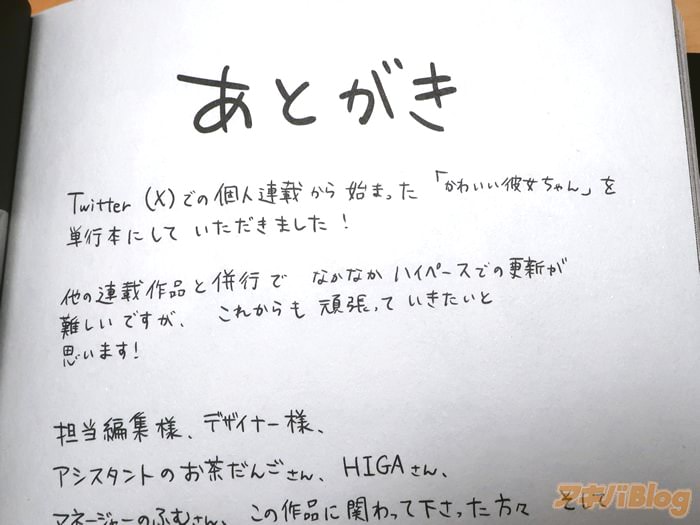 あとがき
Twitter (X)での個人連載から始まった「かわいい彼女ちゃん」を
単行本にしていただきました!
他の連載作品と併行で なかなかハイペースでの更新が
難しいですが、これからも頑張っていきたいと
思います!
担当編集様、デザイナー様、
アシスタントのお茶だんごさん、HIGAさん、
マネージャーのふむさん、この作品に関わって下さった方々 そして
アキバBlog